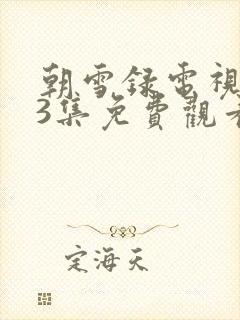 朝雪録電視
3集免費觀看
定海天